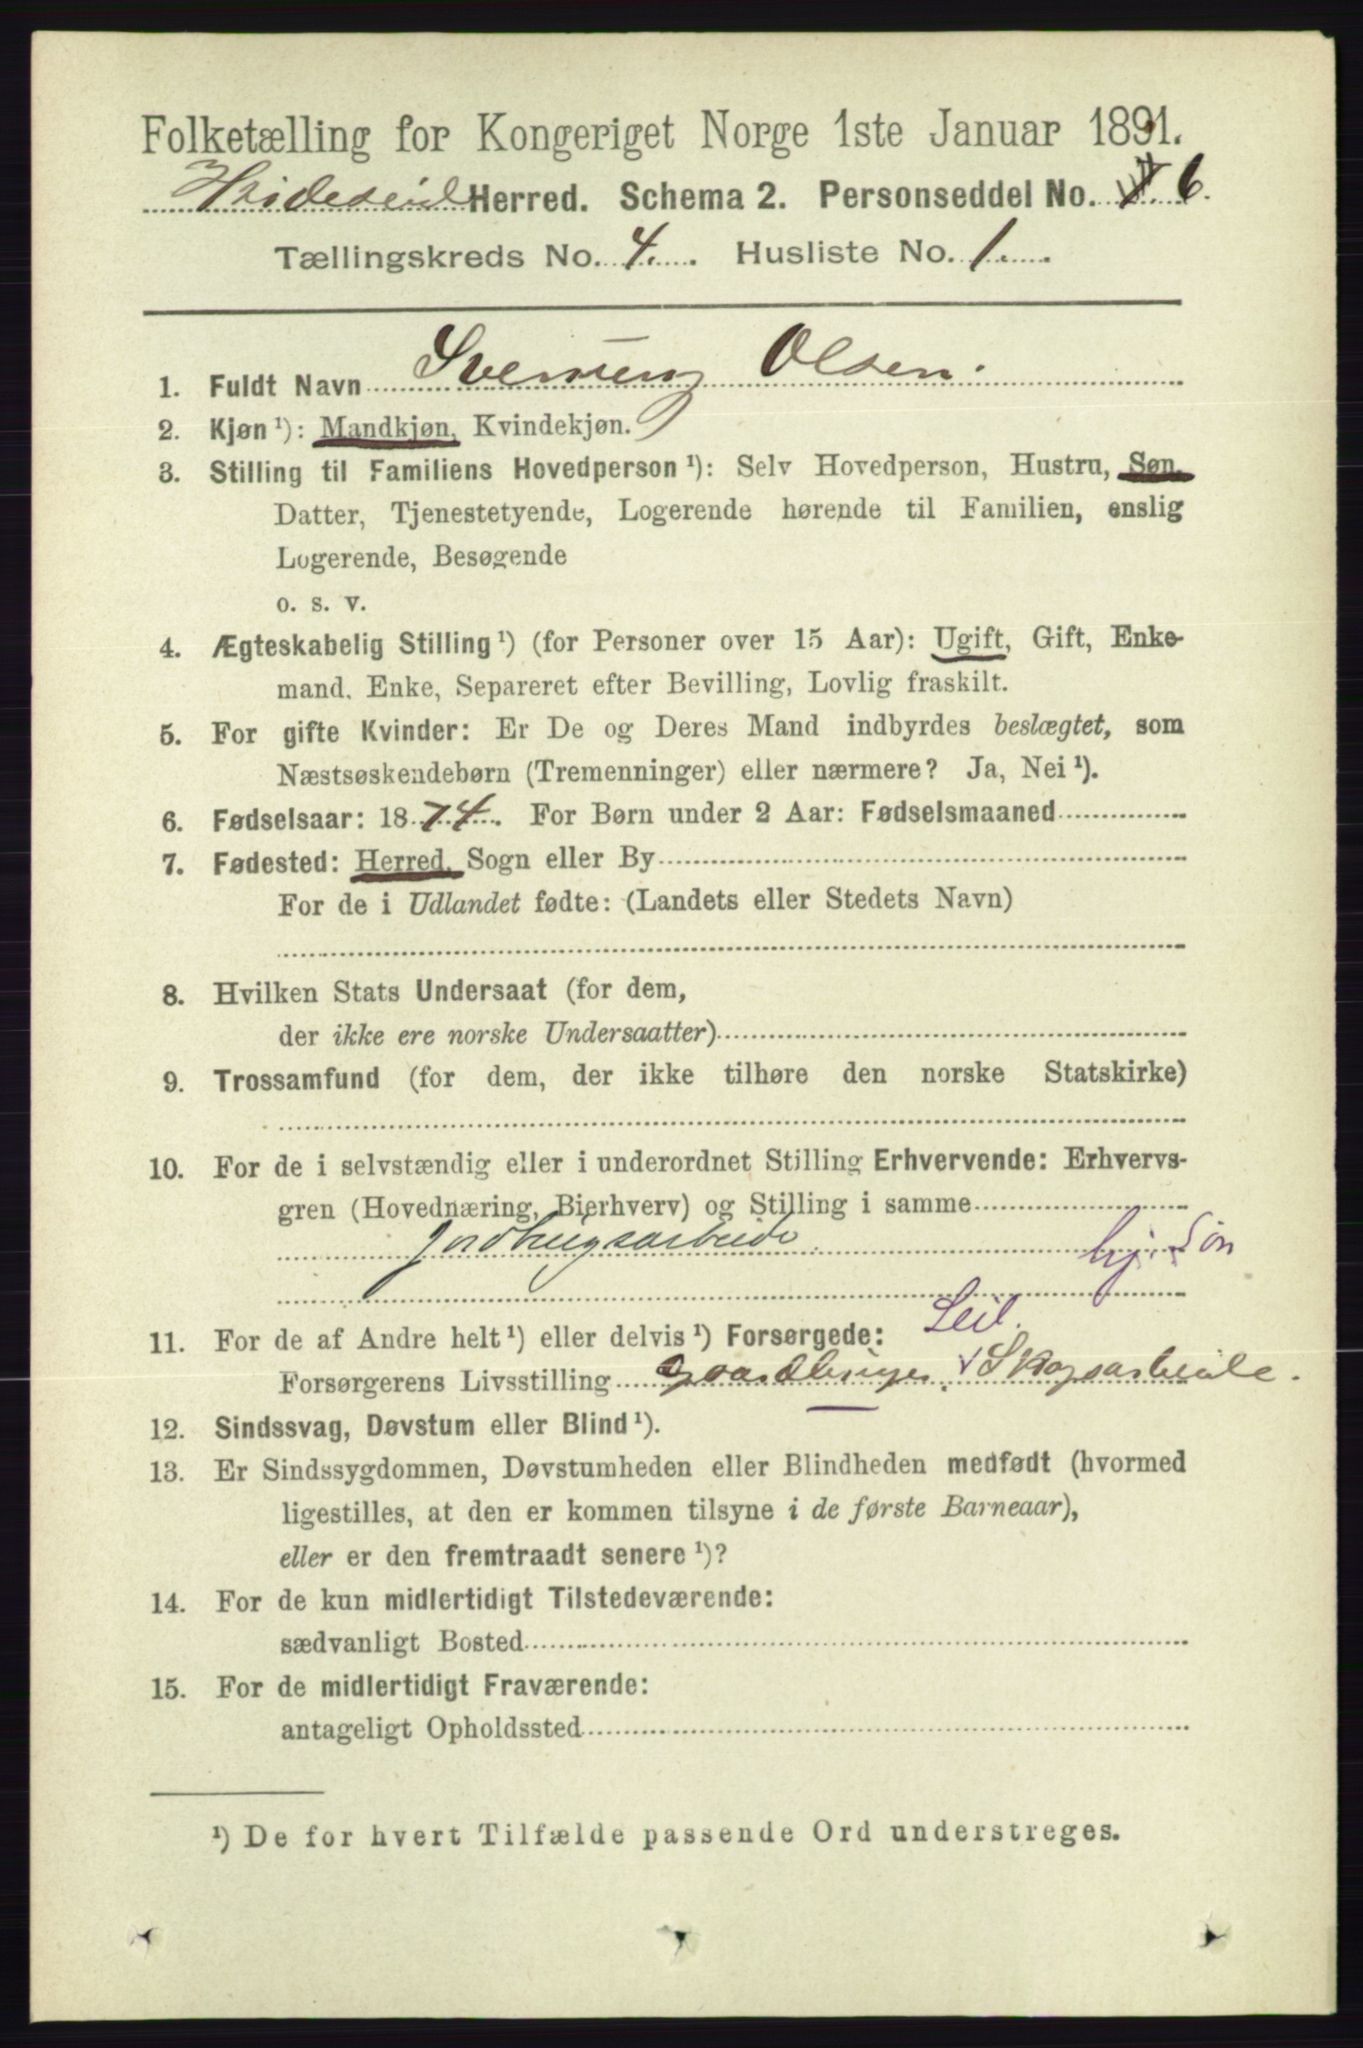 Folketælling for Kongeriget Norge 1ste Januar 1891.
Hvideseid Herred. Schema 2. Personseddel No. 6.
Tællingskreds No. 4. Husliste No. 1.
1. Fuldt Navn Sveinung Olsen.
2. Kjøn ¹): Mandkjøn, Kvindekjøn.
3. Stilling til Familiens Hovedperson ¹): Selv Hovedperson, Hustru, Søn,
Datter, Tjenestetyende, Logerende hørende til Familien, enslig
Logerende, Besøgende
o. s. v.
4. Ægteskabelig Stilling ¹) (for Personer over 15 Aar): Ugift, Gift, Enke-
mand, Enke, Separeret efter Bevilling, Lovlig fraskilt.
5. For gifte Kvinder: Er De og Deres Mand indbyrdes beslægtet, som
Næstsøskendebørn (Tremenninger) eller nærmere? Ja, Nei ¹).
6. Fødselsaar: 1874. For Børn under 2 Aar: Fødselsmaaned
7. Fødested: Herred, Sogn eller By
For de i Udlandet fødte: (Landets eller Stedets Navn)
8. Hvilken Stats Undersaat (for dem,
der ikke ere norske Undersaatter)
9. Trossamfund (for dem, der ikke tilhøre den norske Statskirke)
10. For de i selvstændig eller i underordnet Stilling Erhvervende: Erhvervs-
gren (Hovednæring, Bierhverv) og Stilling i samme
Jordbrugsarbeide hj. Søn
11. For de af Andre helt ¹) eller delvis ¹) Forsørgede: Leil.
Forsørgerens Livsstilling Gaardbruger Skogsarbeide.
12. Sindssvag, Døvstum eller Blind ¹).
13. Er Sindssygdommen, Døvstumheden eller Blindheden medfødt (hvormed
ligestilles, at den er kommen tilsyne i de første Barneaar),
eller er den fremtraadt senere ¹)?
14. For de kun midlertidigt Tilstedeværende:
sædvanligt Bosted
15. For de midlertidigt Fraværende:
antageligt Opholdssted
¹) De for hvert Tilfælde passende Ord understreges.